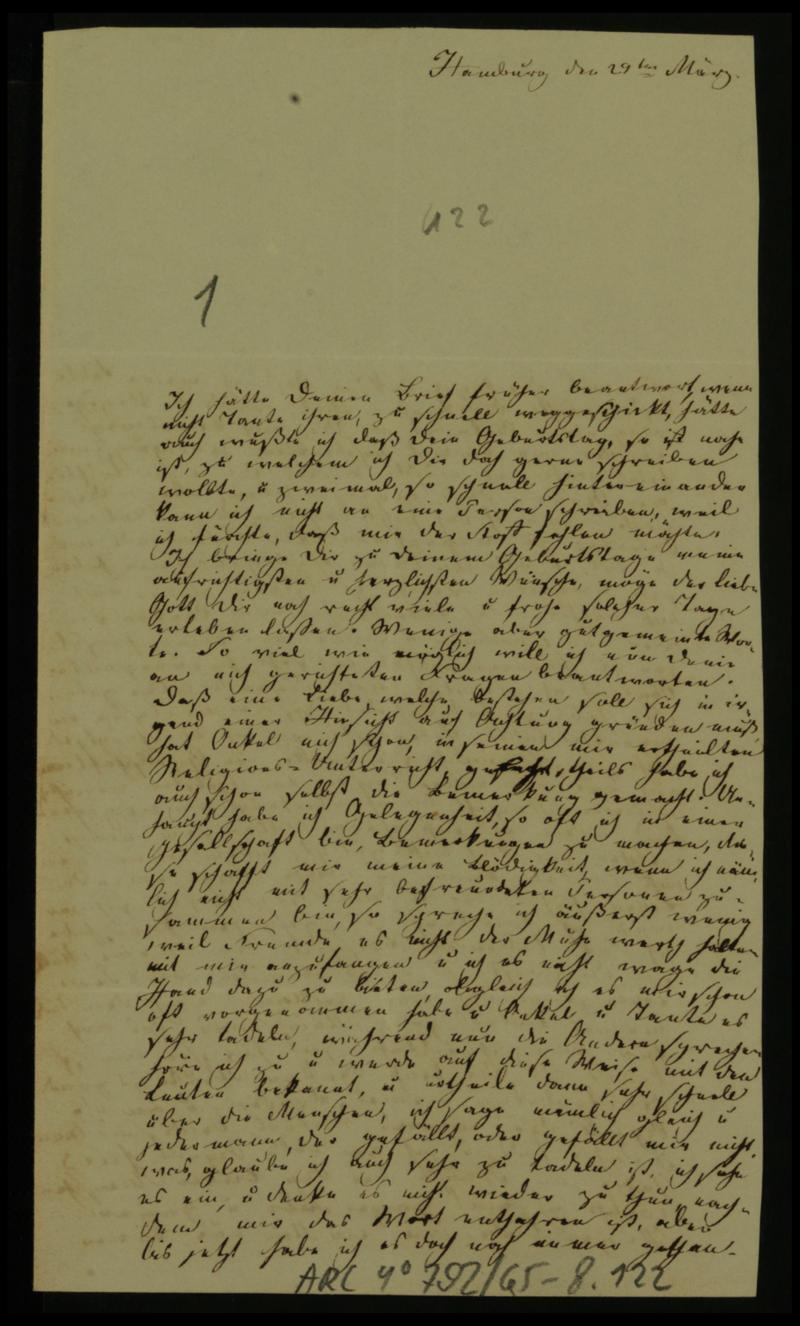 Hamburg den 29ten März.
122
1
Ich hätte Deinen Brief früher beantwort, wenn
nicht Tante ihren, zu schnell weggeschickt, hätte
auch wußte ich daß Dein Geburtstag, so ist nahe
ist, zu welchem ich Dir doch gerne schreiben
wollte, u zweimal, so schnell hintereinander
kann ich nicht an eine Person schreiben, weil
ich fürchte, daß mir der Stoff fehlen möchte.
Ich bringe Dir zu Deinem Geburtstage meine
aufrichtigsten u herzlichsten Wünsche, möge der liebe
Gott Dir noch recht viele u frohe solcher Tage
erleben lassen. Wenige aber gutgemeinte Wor-
te. So viel wie möglich will ich nun Deine
an mich gerichteten Fragen beantworten.
Daß eine Liebe, welche bestehen soll sich in ir-
gend einer Hinsicht auch Achtung gründen muß,
hat Onkel mich schon, in seinem mir ertheilten
Religions-Unterricht, gelehrt, theils habe ich
auch schon selbst die Bemerkung gemacht. Ue-
haupt habe ich Gelegenheit, so oft ich in einer
Gesellschaft bin, Bemerkungen zu machen, die-
se schafft mir meine Blödigkeit, wenn ich näm-
lich nicht mit sehr befreundeten Personen zu-
sammen bin, so spreche ich äußerst wenig
weil Fremde es nicht der Mühe werth halten
mit mir anzufangen u ich es nicht wage die
Hand dazu zu bieten, obgleich ich es mir schon
oft vorgenommen habe u Onkel u Tante es
sehr tadeln, während nun die Andern sprechen
höre ich zu u werde auf diese Weise mit den
Leuten bekannt, u urtheile dann sehr schnell
über die Menschen, ich sage nämlich gleich u
jedermann, der gefällt, oder gefällt mir nicht,
was, glaube ich auch sehr zu tadeln ist, ich sehe
es ein, u denke es nicht wieder zu thun, nach-
dem mir das Wort entfahren ist, aber
bis jetzt habe ich es doch noch immer gethan.
ARC 4° 792/G5-8.122